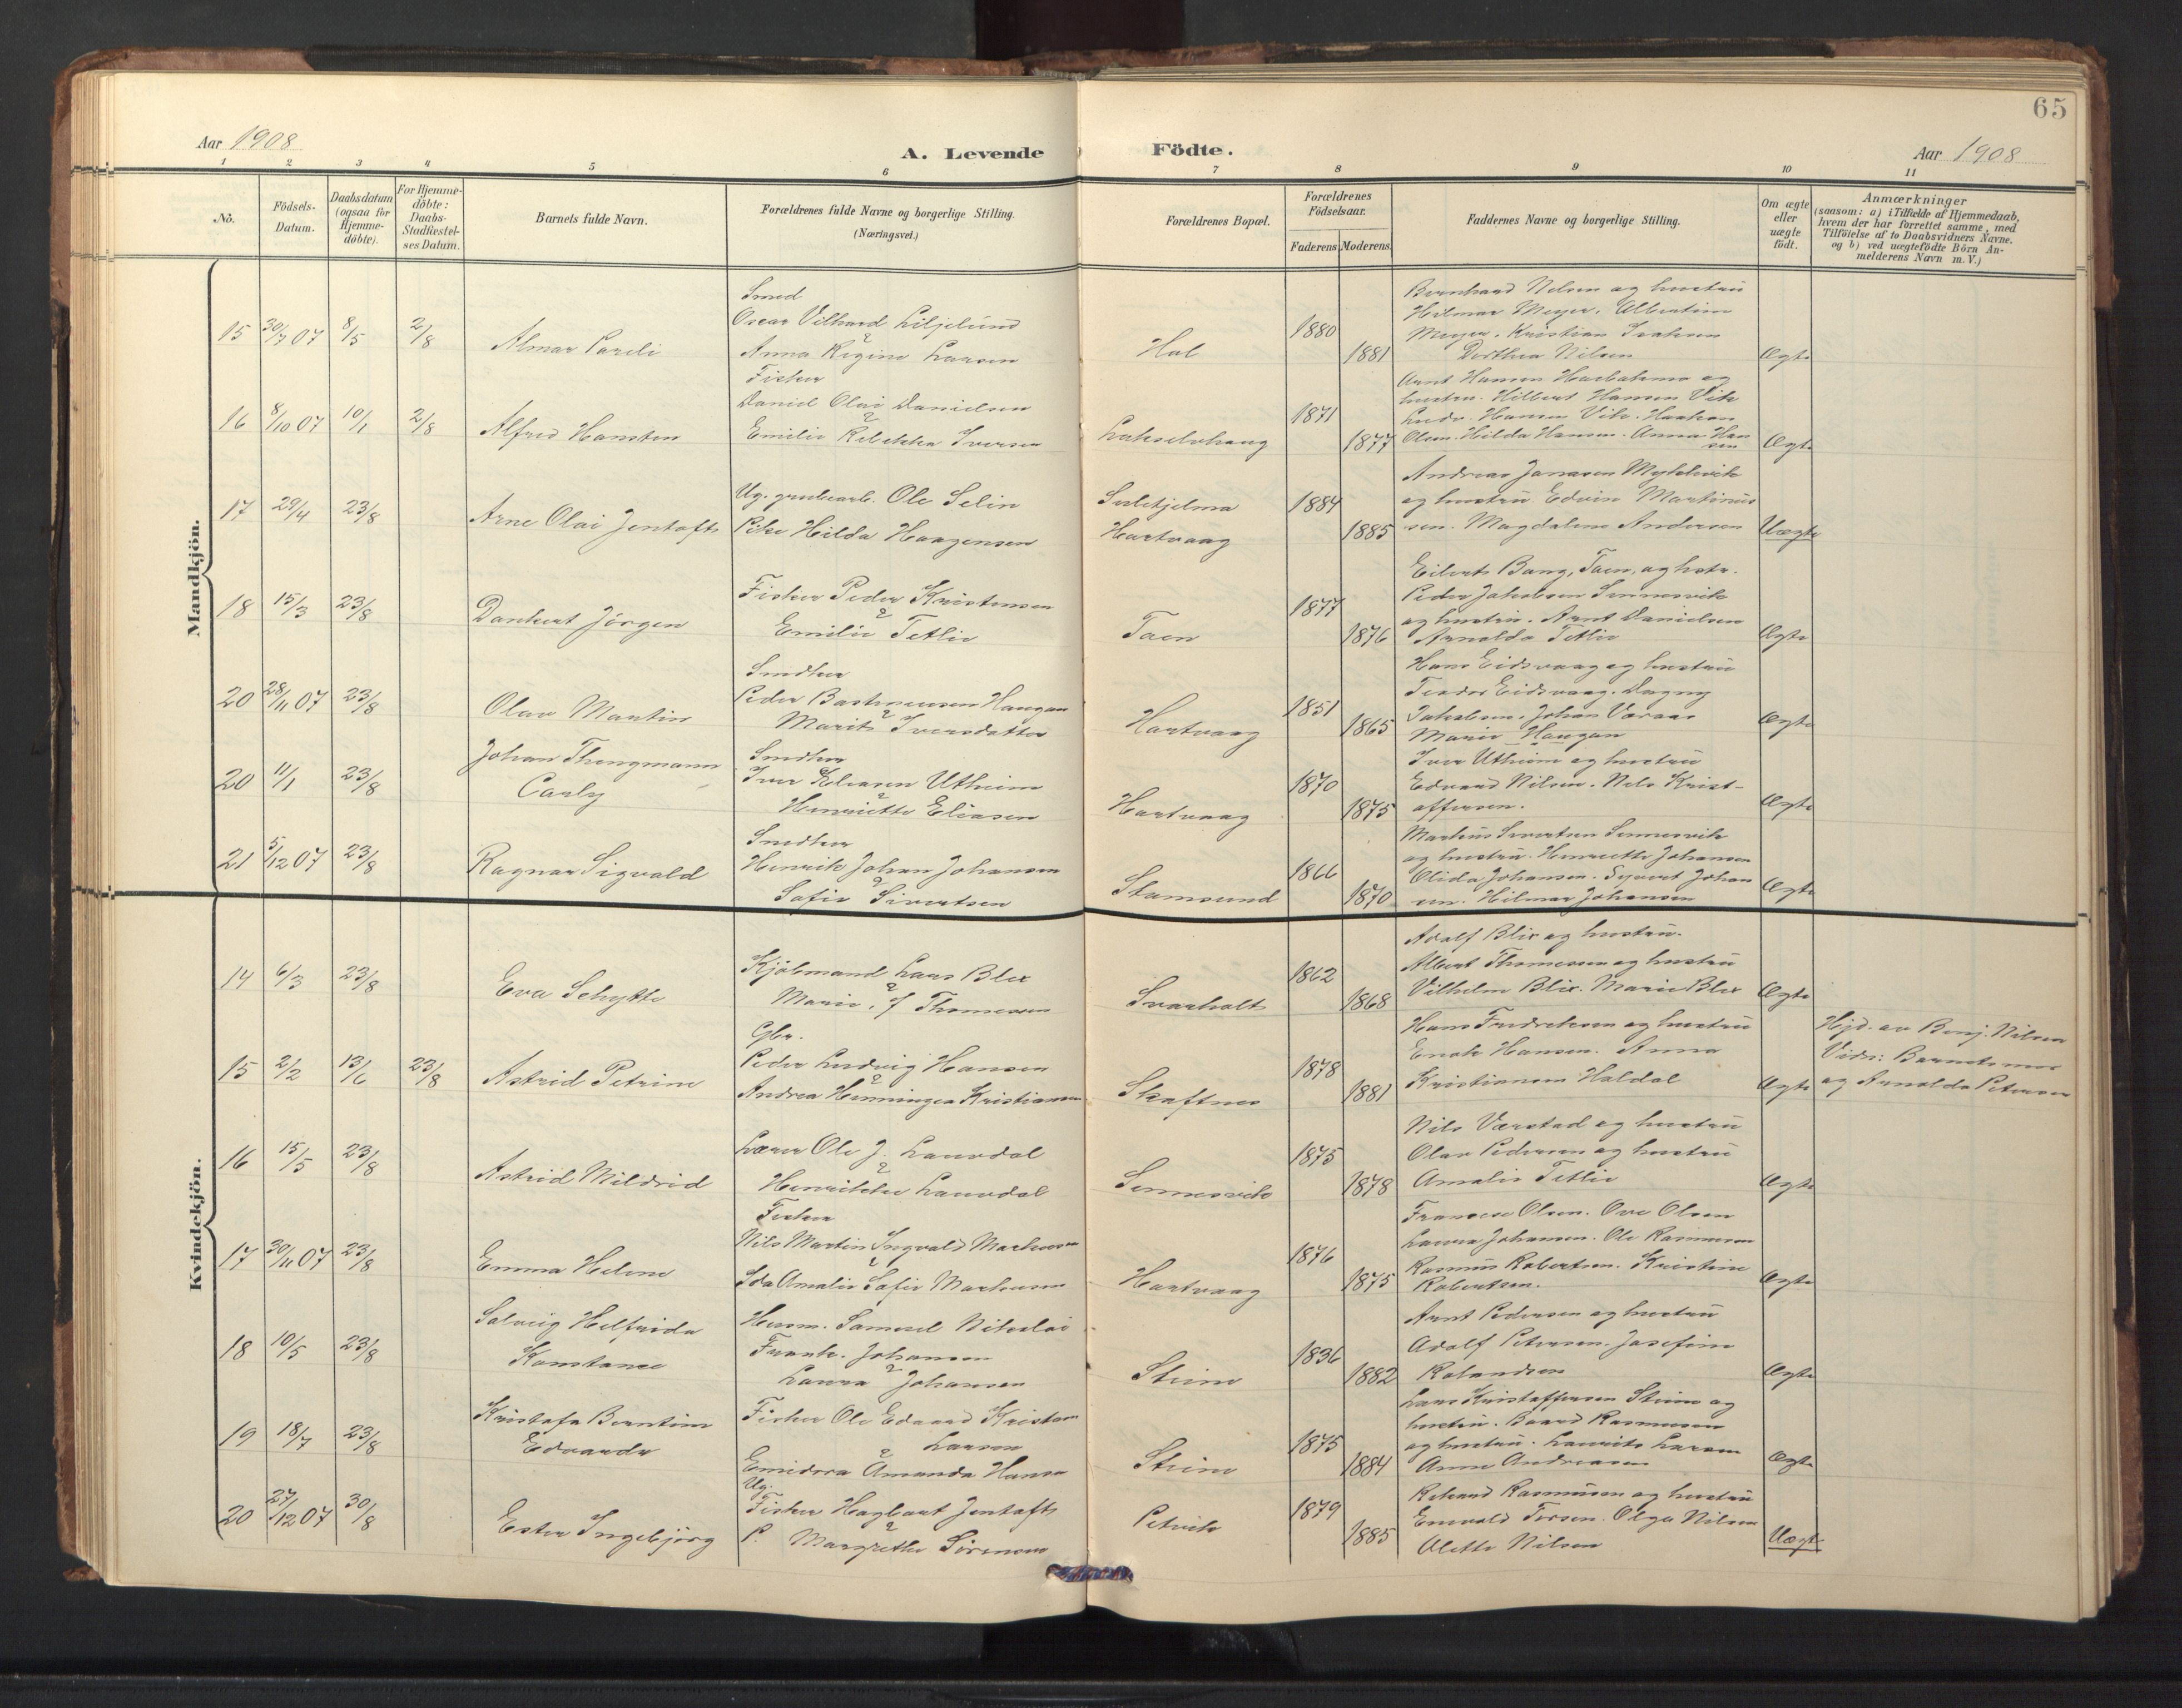 65
Aar 1908
A. Levende Födte.
Aar 1908
1 2 3 4 5 6 7 8 9 10 11
No.
Födsels-Datum.
Daabsdatum (ogsaa for Hjemme-döbte).
For Hjemme-döbte: Daabs-Stadfæstel-ses Datum.
Barnets fulde Navn.
Forældrenes fulde Navne og borgerlige Stilling.
(Næringsvei.)
Forældrenes Bopæl.
Forældrenes Födselsaar.
Faderens Moderens.
Faddernes Navne og borgerlige Stilling.
Om ægte eller uægte födt.
Anmærkninger
(saasom: a) i Tilfælde af Hjemmedaab,
hvem der har forrettet samme, med
Tilföielse af to Daabsvidners Navne,
og b) ved uægtefödte Börn An-
melderens Navn m. V.)
Mandkjön.
15 30/7 07 8/5 2/8
Almar Pareli
Smed
Oscar Vilhard Liljelund
Anna Regine Larsen
Hol
1880
1881
Bernhard Nilsen og hustru
Hilmar Meyer. Albertine
Meyer. Kristian Isaksen
Dorthea Nilsen
Ægte
16 8/10 07 10/1 2/8
Alfred Hansten
Fisker
Daniel Olai Danielsen
Emilie Rebekka Iversen
1871
1877
Arnt Hansen
hustru. Hilbert Hansen Vik
Ludv. Hansen Vik. Haakon
Olsen. Hilda Hansen. Anna Han
sen
Ægte
17 29/4 23/8
Arne Olai Jentoft
Ug. grubearb. Ole Selin
Pike Hilda Haagensen
Sulitjelma
Hartvaag
1884
1885
Andreas Jonasen Myklevik
og hustru. Edvin Martinus
sen. Magdalene Andersen
Uægte
18 15/3 23/8
Dankert Jörgen
Fisker Peder Kristensen
Emilie Tetlie
Taen
1877
1876
Eilert Bang, Taen, og hstr.
Peder Jakobsen Sennesvik
og hustru. Arnt Danielsen
Arnolda Tetlie
Ægte
20 28/11 07 23/8
Olav Martin
Smedker
Peder Bastiansen Haugan
Marit Iversdatter
Hartvaag
1851
1865
Hans Eidsvaag og hustru
Teodor Eidsvaag. Dagny
Jakobsen. Johan Væraas
Marie Haugan
Ægte
20 11/1 23/8
Johan Thengmann
Carly
Iver Eliasen Utheim
Henriette Eliasen
Hartvaag
1870
1875
Iver Utheim og hustru
Edvard Nilsen. Nels Krist-
offersen.
Ægte
21 5/12 07 23/8
Ragnar Sigvald
Henrik Johan Johansen
Sofie Sivertsen
Stamsund
1866
1870
Markus Sivertsen Sennesvik
og hustru. Henriette Johansen
Olida Johansen. Syvert Johan
sen. Hilmar Johansen
Ægte
Kvindekjön.
14 6/3 23/8
Eva Schytte
Kjöbmand Lars Blix
Marie, f Thomessen
Svarholt
1862
1868
Adolf Blix og hustru.
Albert Thomessen og hustru
Vilhelm Blix. Marie Blix
Ægte
15 2/2 13/6 23/8
Astrid Petrine
Gbr.
Peder Ludvig Hansen
Andrea Henningea Kristiansen
Skaftnes
1878
1881
Hans Fredriksen og hustru
Enok Hansen. Anna
Kristiansen Haldal
Ægte
Hjd. av Benj. Nilsen
Vidn: Barnets mor
og Arnolda Petersen
16 15/5 23/8
Astrid Mildrid
Lærer Ole J. Lauvdal
Henrikke Lauvdal
Sennesvik
1875
1878
Nils Værstad og hustru
Olav Pedersen og hustru
Amalie Tetlie
Ægte
17 30/11 07 23/8
Emma Helene
Fisker
Nils Martin Ingvald Markussen
Ida Amalie Sofie Markussen
Hartvaag
1876
1875
Fransese Olsen. Ove Olsen
Laura Johansen. Ole Rasmussen
Rasmus Robertsen. Kristine
Robertsen.
Ægte
18 10/5 23/8
Solveig Helfrida
Konstance
Husm. Samuel Nikolai
Frank. Johansen
Laura Johansen
Steine
1836
1882
Arnt Pedersen og hustru
Adolf Petersen. Josefine
Rolandsen
Ægte
19 18/7 23/8
Kristofa Berntine
Edvarda
Fisker Ole Edvard Kristian
Larsen
Emidora Amanda Hansen
Steine
1875
1884
Lars Kristoffersen Steine og
hustru. Baard Rasmussen
og hustru. Laurits Larsen
Anne Andreasen
Ægte
20 27/12 07 30/8
Ester Ingebjörg
Ug.
Fisker Hagbart Jentoft
P. Margrethe Sörensen
Petvik
1879
1885
Edvard Rasmussen og hustru
Enevold Torsen. Olga Nilsen
Alette Nilsen
Uægte